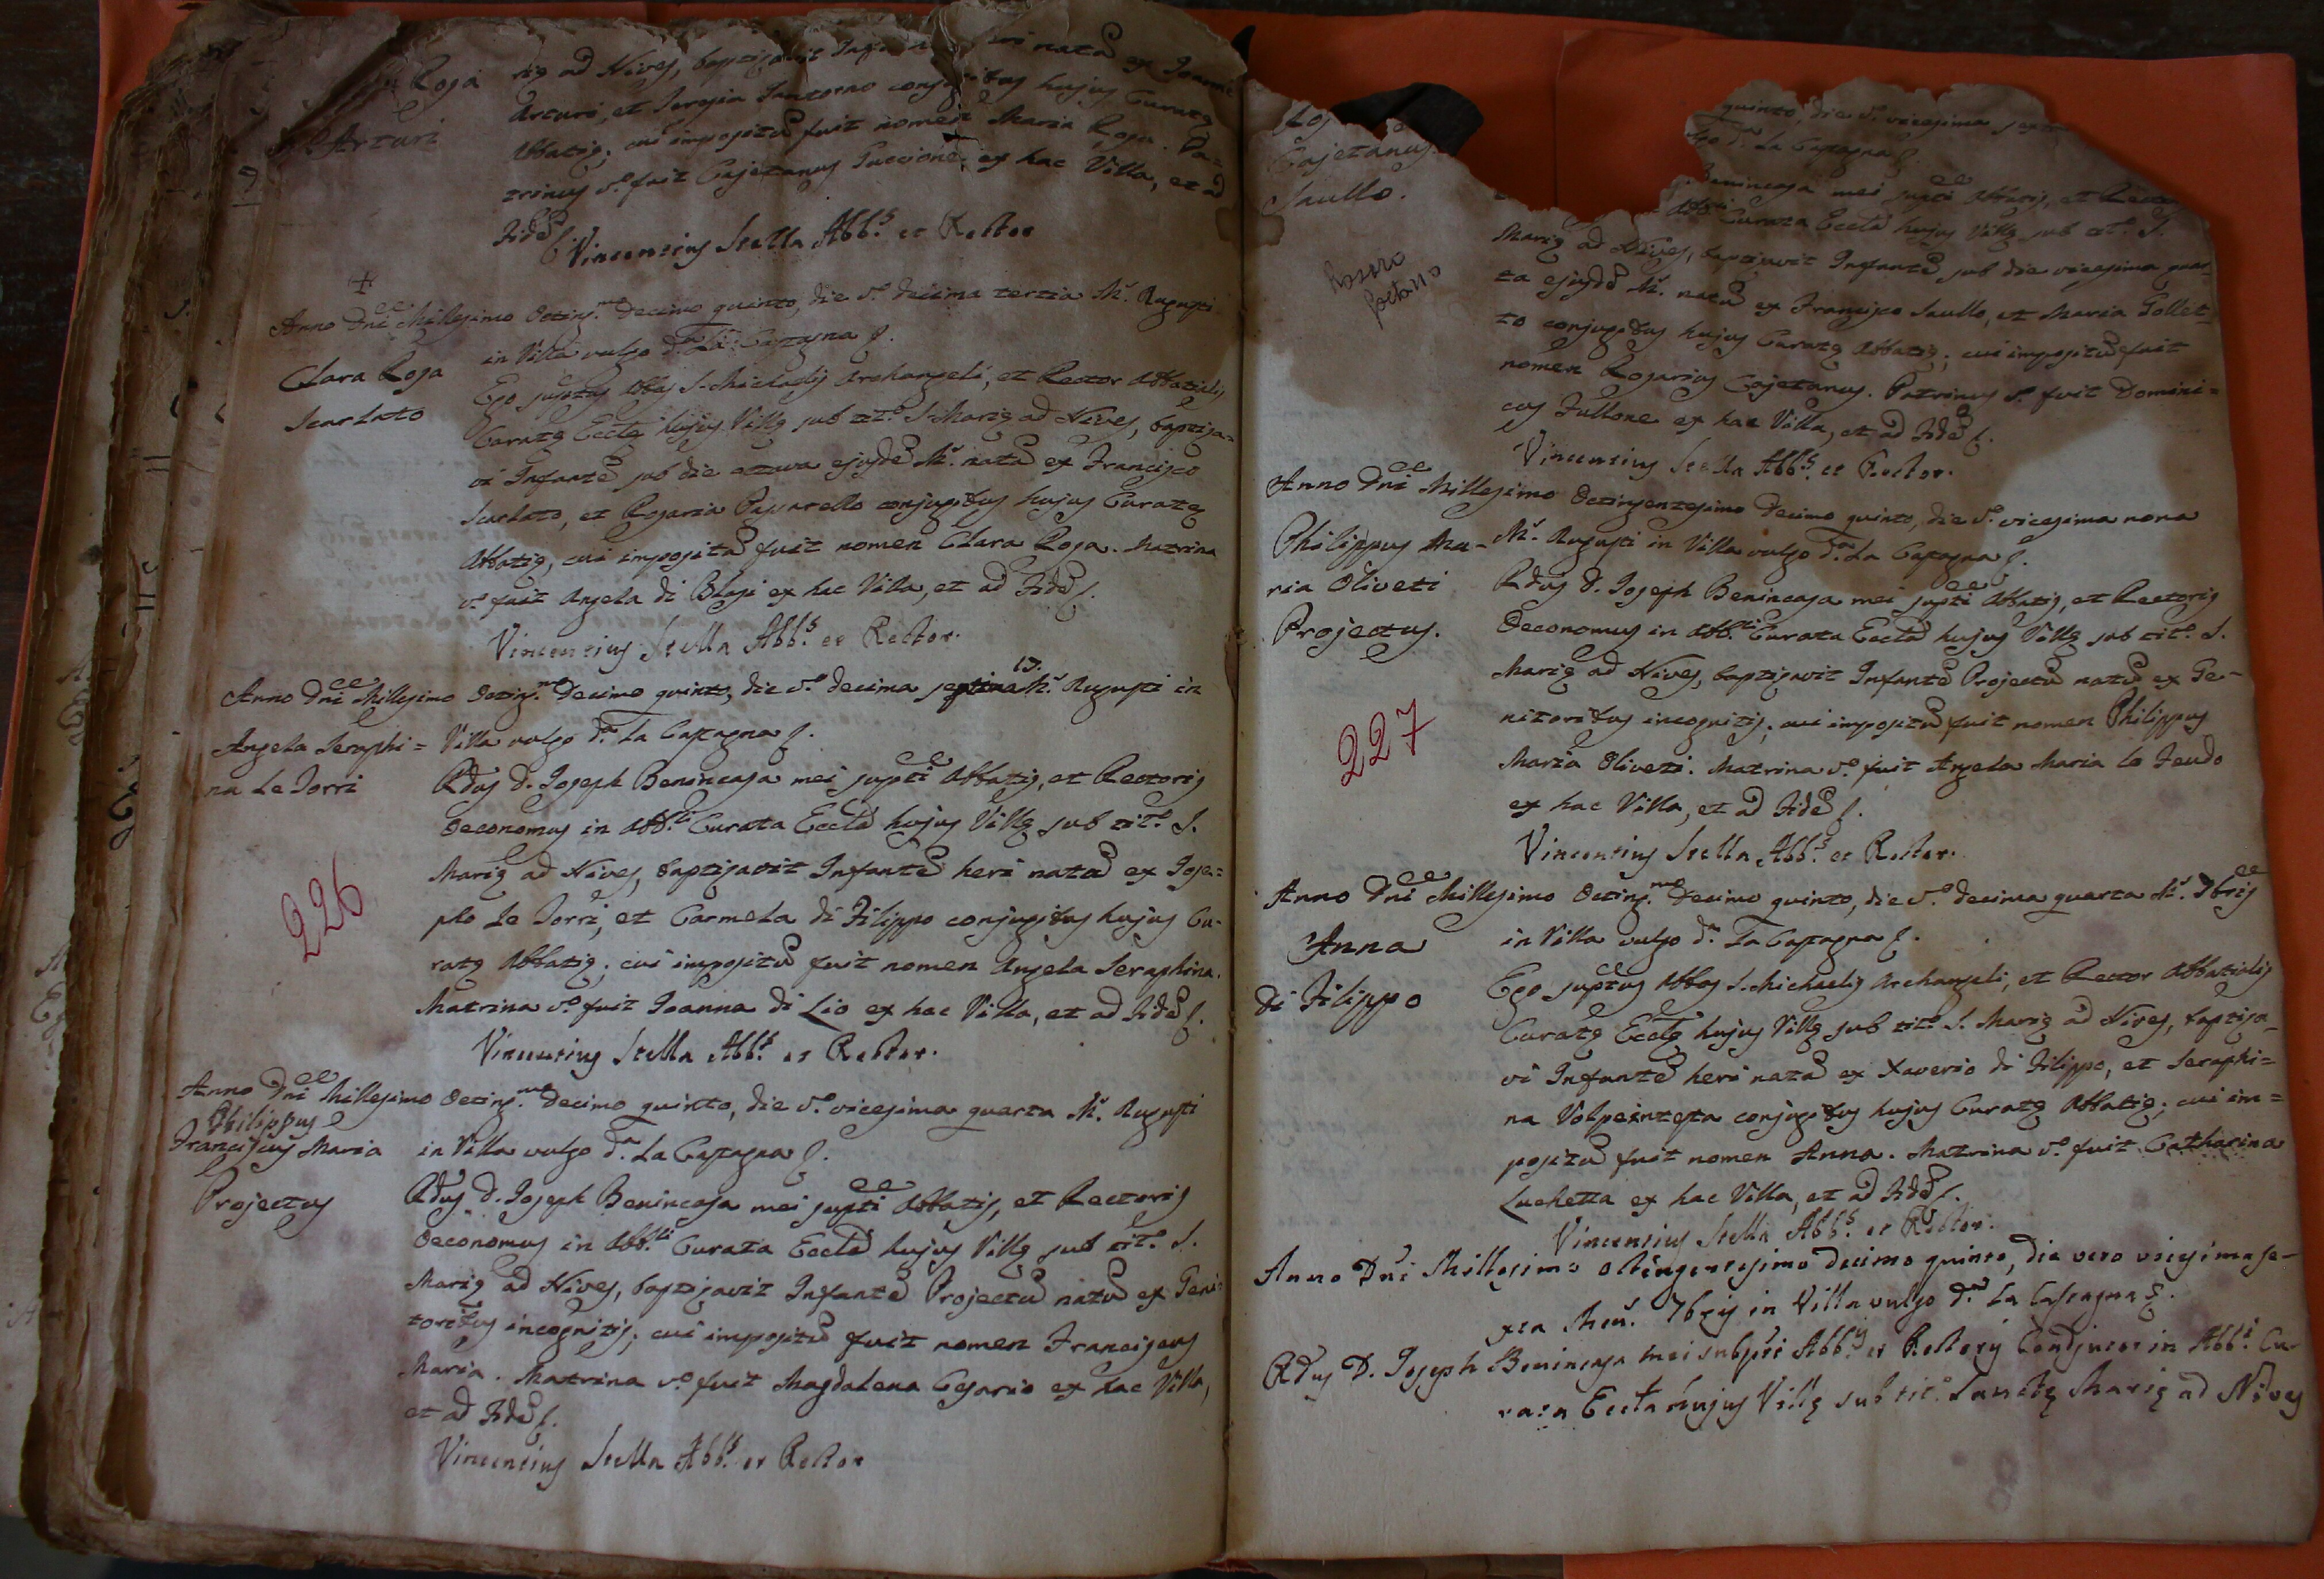 Rosa
Arturi
rię ad Nives, baptizavit Infan heri natã ex Joanne
Arturi, et Serafia Santorno conjugibus hujus Curatę
Abbatię; cui impositũ fuit nomen Maria Rosa. Pa=
trinus v.º fuit Cajetanus Puccione ex hac Villa, et ad
Fidẽ
Vincentius Stella Abb.s et Rector
Anno Dñi Millesimo Octing.mo Decimo quinto, die v.º decima tertia M.s Augusti
in Villa vulgo d.a La Castagna
Clara Rosa
Scarlato
Ego sup̃tus Abbas S. Michaelis Archangeli, et Rector Abbatialis
Curatę Ecclę hujus Villę sub tit.º S. Marię ad Nives, baptiza=
vi Infantẽ sub die octava ejusdẽ M.s natã ex Francisco
Scarlato, et Rosaria Passarello conjugibus hujus Curatę
Abbatię, cui impositũ fuit nomen Clara Rosa. Matrina
v.º fuit Angela di Blasi ex hac Villa, et ad Fidẽ
Vincentius Stella Abb.s et Rector.
Anno Dñi Millesimo Octing.mo Decimo quinto, die v.º decima septima 17. M.s Augusti in
Angela Seraphi=
na Le Sorri
Villa vulgo d.a La Castagna
Rd̃us D. Joseph Benincasa mei sup̃ti Abbatis, et Rectoris
Oeconomus in Abb.li Curata Ecclã hujus Villę sub tit.º S.
Marię ad Nives, baptizavit Infantẽ heri natã ex Jose=
pho Le Sorri, et Carmela di Filippo conjugibus hujus Cu-
ratę Abbatię; cui impositũ fuit nomen Angela Seraphina.
Matrina v.º fuit Joanna di Lio ex hac Villa, et ad Fidẽ
Vincentius Stella Abb.s et Rector.
226
Anno Dñi Millesimo Octing.mo Decimo quinto, die v.º vicesima quarta M.s Augusti
Philippus
Franciscus Maria
Projectus
in Villa vulgo d.a La Castagna
Rd̃us D. Joseph Benincasa mei sup̃ti Abbatis, et Rectoris
Oeconomus in Abb.li Curata Ecclã hujus Villę sub tit.º S.
Marię ad Nives, baptizavit Infantẽ Projectũ natũ ex Geni=
toribus incognitis; cui impositũ fuit nomen Franciscus
Maria. Matrina v.º fuit Magdalena Cesario ex hac Villa,
et ad Fidẽ
Vincentius Stella Abb.s et Rector
Cajetanus
Saullo.
quinto, die v.º vicesima
d.a La Castagna
Benincasa mei sup̃ti Abbatis, et Recto
Abb.li Curata Ecclã hujus Villę sub tit.º S.
Marię ad Nives, baptizavit Infantẽ sub die vicesima quar=
ta ejusdẽ M.s natũ ex Francisco Saullo, et Maria Gollet=
to conjugibus hujus Curatę Abbatię; cui impositũ fuit
nomen Rosarius Cajetanus. Patrinus v.º fuit Domini=
cus Fullone ex hac Villa, et ad Fidẽ
Vincentius Stella Abb.s et Rector.
Anno Dñi Millesimo Octingentesimo Decimo quinto, die v.º vicesima nona
Philippus Ma-
ria Oliveti
Projectus.
M.s Augusti in Villa vulgo d.a La Castagna
Rd̃us D. Joseph Benincasa mei sup̃ti Abbatis, et Rectoris
Oeconomus in Abb.li Curata Ecclã hujus Villę sub tit.º S.
Marię ad Nives, baptizavit Infantẽ Projectũ natũ ex Ge=
nitoribus incognitis; cui impositũ fuit nomen Philippus
Maria Oliveti. Matrina v.º fuit Angela Maria Lo Feudo
ex hac Villa, et ad Fidẽ
Vincentius Stella Abb.s et Rector.
227
Anno Dñi Millesimo Octing.mo Decimo quinto, die v.º decima quarta M.s 7bris
Anna
di Filippo
in Villa vulgo d.a La Castagna
Ego sup̃tus Abbas S. Michaelis Archangeli, et Rector Abbatialis
Curatę Ecclę hujus Villę sub tit.º S. Marię ad Nives, baptiza=
vi Infantẽ heri natã ex Xaverio di Filippo, et Seraphi=
na Volpeintesta conjugibus hujus Curatę Abbatię; cui im=
positũ fuit nomen Anna. Matrina v.º fuit Catharina
Luchetta ex hac Villa, et ad Fidẽ
Vincentius Stella Abb.s et Rector.
Anno Dñi Millesimo octingentesimo decimo quinto, die vero vicesima se-
xta Men. 7bris in Villa vulgo d.a La Castagna
Rd̃us D. Joseph Benincasa mei subsc̃ti Abb.is et Rectoris Coadjutor in Abb.li Cu-
rata Eccla hujus Villę sub tit.º Sanctę Marię ad Nives